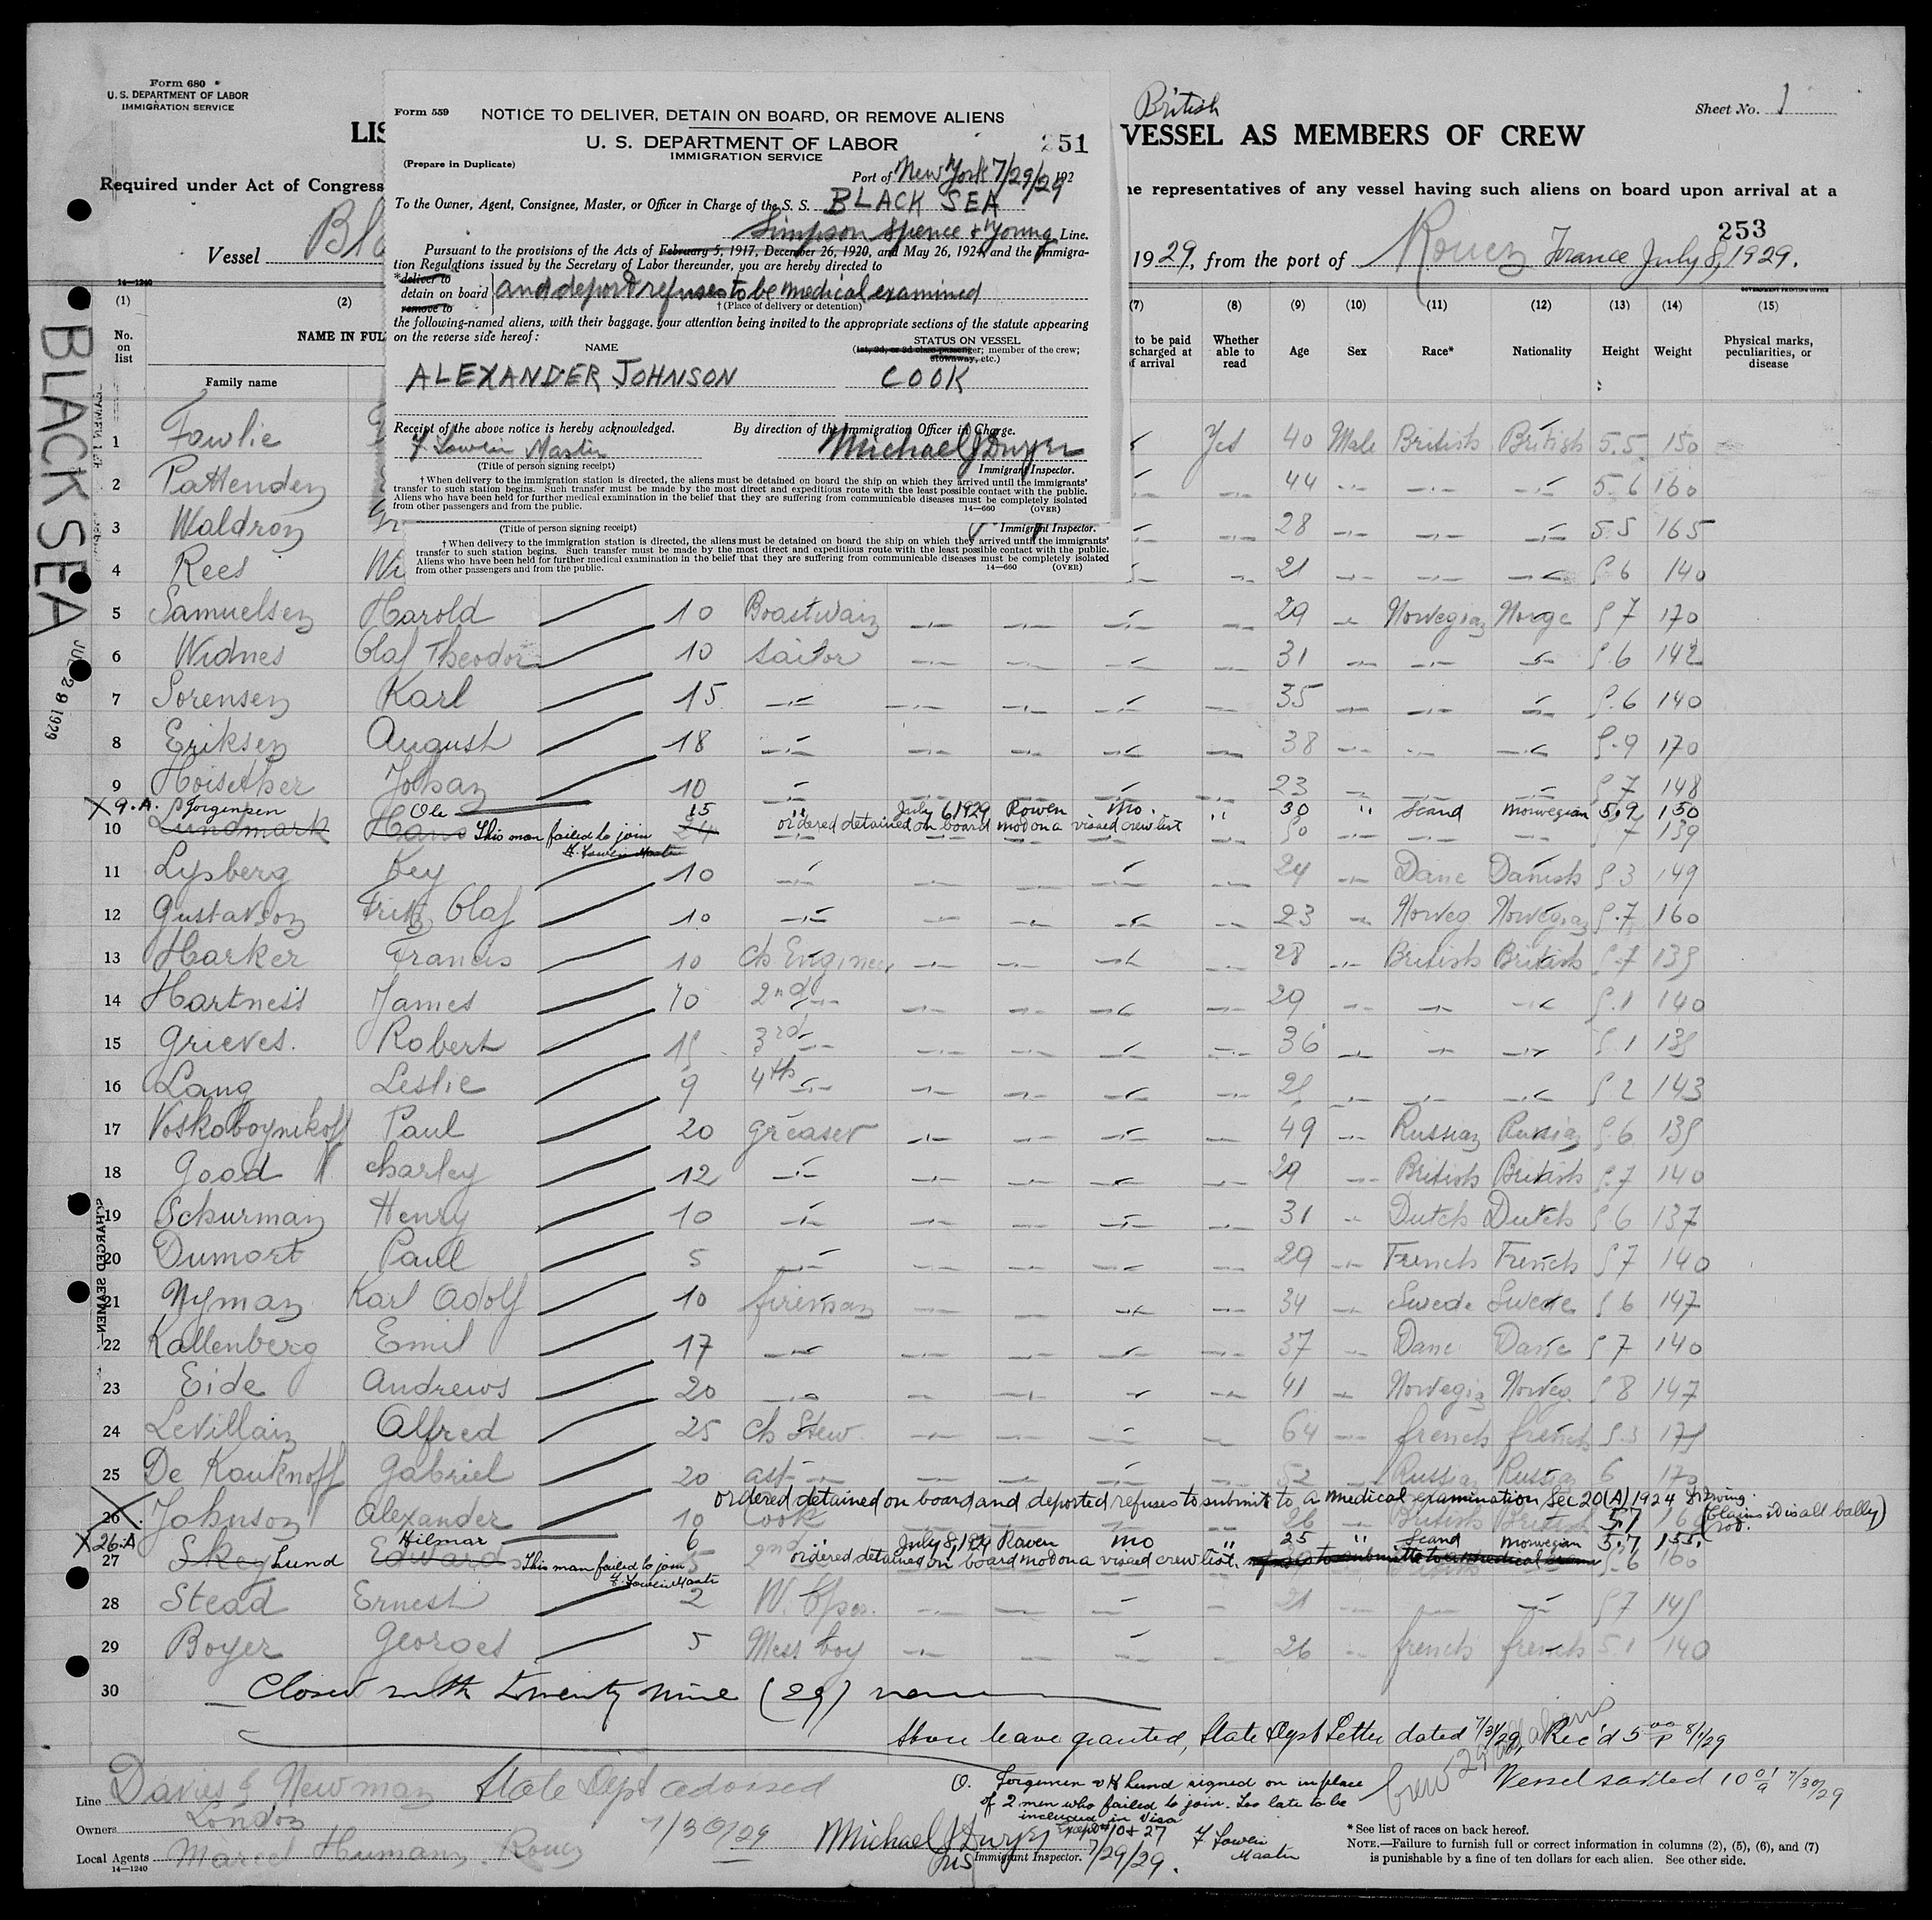 Form 680
U. S. DEPARTMENT OF LABOR
IMMIGRATION SERVICE
British
Sheet No. 1
LIS
VESSEL AS MEMBERS OF CREW
Required under Act of Congress
representatives of any vessel having such aliens on board upon arrival at a
253
Vessel Bla
1929, from the port of Rouen France July 8, 1929.
Form 559
NOTICE TO DELIVER, DETAIN ON BOARD, OR REMOVE ALIENS
U. S. DEPARTMENT OF LABOR
IMMIGRATION SERVICE
251
(Prepare in Duplicate)
Port of New York 7/29/29 192
To the Owner, Agent, Consignee, Master, or Officer in Charge of the S. S. BLACK SEA
Simpson Spence & Young Line.
Pursuant to the provisions of the Acts of February 5, 1917, December 26, 1920, and May 26, 1924, and the Immigra-
tion Regulations issued by the Secretary of Labor thereunder, you are hereby directed to
*deliver to
detain on board and deport refuses to be medical examined
remove to
†(Place of delivery or detention)
the following-named aliens, with their baggage, your attention being invited to the appropriate sections of the statute appearing
on the reverse side hereof:
NAME
STATUS ON VESSEL
(1st, 2d, or 3d class passenger; member of the crew;
stowaway, etc.)
ALEXANDER JOHNSON COOK
Receipt of the above notice is hereby acknowledged. By direction of the Immigration Officer in Charge.
Master Michael J Dwyer
(Title of person signing receipt) Immigrant Inspector.
† When delivery to the immigration station is directed, the aliens must be detained on board the ship on which they arrived until the immigrants'
transfer to such station begins. Such transfer must be made by the most direct and expeditious route with the least possible contact with the public.
Aliens who have been held for further medical examination in the belief that they are suffering from communicable diseases must be completely isolated
from other passengers and from the public.
14—660 (OVER)
(Title of person signing receipt) Immigrant Inspector.
† When delivery to the immigration station is directed, the aliens must be detained on board the ship on which they arrived until the immigrants'
transfer to such station begins. Such transfer must be made by the most direct and expeditious route with the least possible contact with the public.
Aliens who have been held for further medical examination in the belief that they are suffering from communicable diseases must be completely isolated
from other passengers and from the public.
14—660 (OVER)
BLACK SEA
JUL 29 1929
14—1240
GOVERNMENT PRINTING OFFICE
(1) (2) (7) (8) (9) (10) (11) (12) (13) (14) (15)
No. on list
NAME IN FUL
Family name
to be paid
scharged at
f arrival
Whether able to read
Age Sex Race* Nationality Height Weight
Physical marks, peculiarities, or disease
1 Fowlie Yes 40 Male British British 5.5 150
2 Pattenden 44 5.6 160
3 Waldron 28 5.5 165
4 Rees Wi 21 5.6 140
5 Samuelsen Harold 10 Boastwain 29 Norwegian Norge 5 7 170
6 Widnes Olaf Theodor 10 Sailor 31 5.6 142
7 Sorensen Karl 15 35 5.6 140
8 Eriksen August 18 38 5.9 170
9 Hoisether Johan 10 23 5.7 148
X 9.A. Jorgensen Ole 15 " July 6 1929 Rouen no. " 30 " Scand norwegian 5.9 150
10 Lundmark Hans This man failed to join 24 ordered detained on board not on a visaed crew list 50 5 7 139
Master
11 Lysberg Key 10 24 Dane Danish 5 3 149
12 Gustavson Fritz Olaf 10 23 Norweg Norwegian 5.7 160
13 Harker Francis 10 Ch Engineer 28 British British 5.7 135
14 Hartness James 10 2nd 29 5.1 140
15 Grieves. Robert 15 3rd 36 5.1 135
16 Lang Leslie 9 4th 5 2 143
17 Voskoboynikoff Paul 20 Greaser 49 Russian Russian 5.6 135
18 Good Charley 12 29 British British 5.7 140
19 Schurman Henry 10 31 Dutch Dutch 5 6 137
20 Dumort Paul 5 29 French French 5 7 140
21 Nyman Karl Adolf 10 fireman 34 Swede Swede 5 6 147
22 Kallenberg Emil 17 37 Dane Dane 5 7 140
23 Eide Andrews 20 41 Norwegian Norweg. 5 8 147
24 Levillain Alfred 25 Ch Stew. 64 french french 5.3 175
25 De Kauknoff Gabriel 20 ast 52 Russian Russian 6 170
ordered detained on board and deported refuses to submit to a medical examination Sec 20(A) 1924
26 Johnson Alexander 10 Cook 26 British British 5.7
X 26.A Lund Hilmar 6 July 8, 1929 Rouen no " 25 " Scand norwegian 5.7 155.
27 Skey Edwards This man failed to join 5 2nd ordered detained on board not on a visaed crew list. 5.6 160
28 Stead Ernest 2 W. Oper. 21 5 7 145
29 Boyer Georges 5 Mess boy 26 french french 5.1 140
30 Closed with twenty nine (29) names
Shore leave granted, State Dept Letter dated 7/31/29, Rec'd 5 00 P 8/1/29
Vessel sailed 10 01 a 7/30/29
Line Davies & Newman State Dept advised
Owners London 7/30/29
Local Agents Marcel Humann. Rouen
14—1240
O. Jorgensen & H Lund signed on in place
of 2 men who failed to join. Too late to be
included in Visa
Except #10 & 27
Michael J Dwyer
Ins Immigrant Inspector. 7/29/29.
Master
* See list of races on back hereof.
NOTE.—Failure to furnish full or correct information in columns (2), (5), (6), and (7)
is punishable by a fine of ten dollars for each alien. See other side.